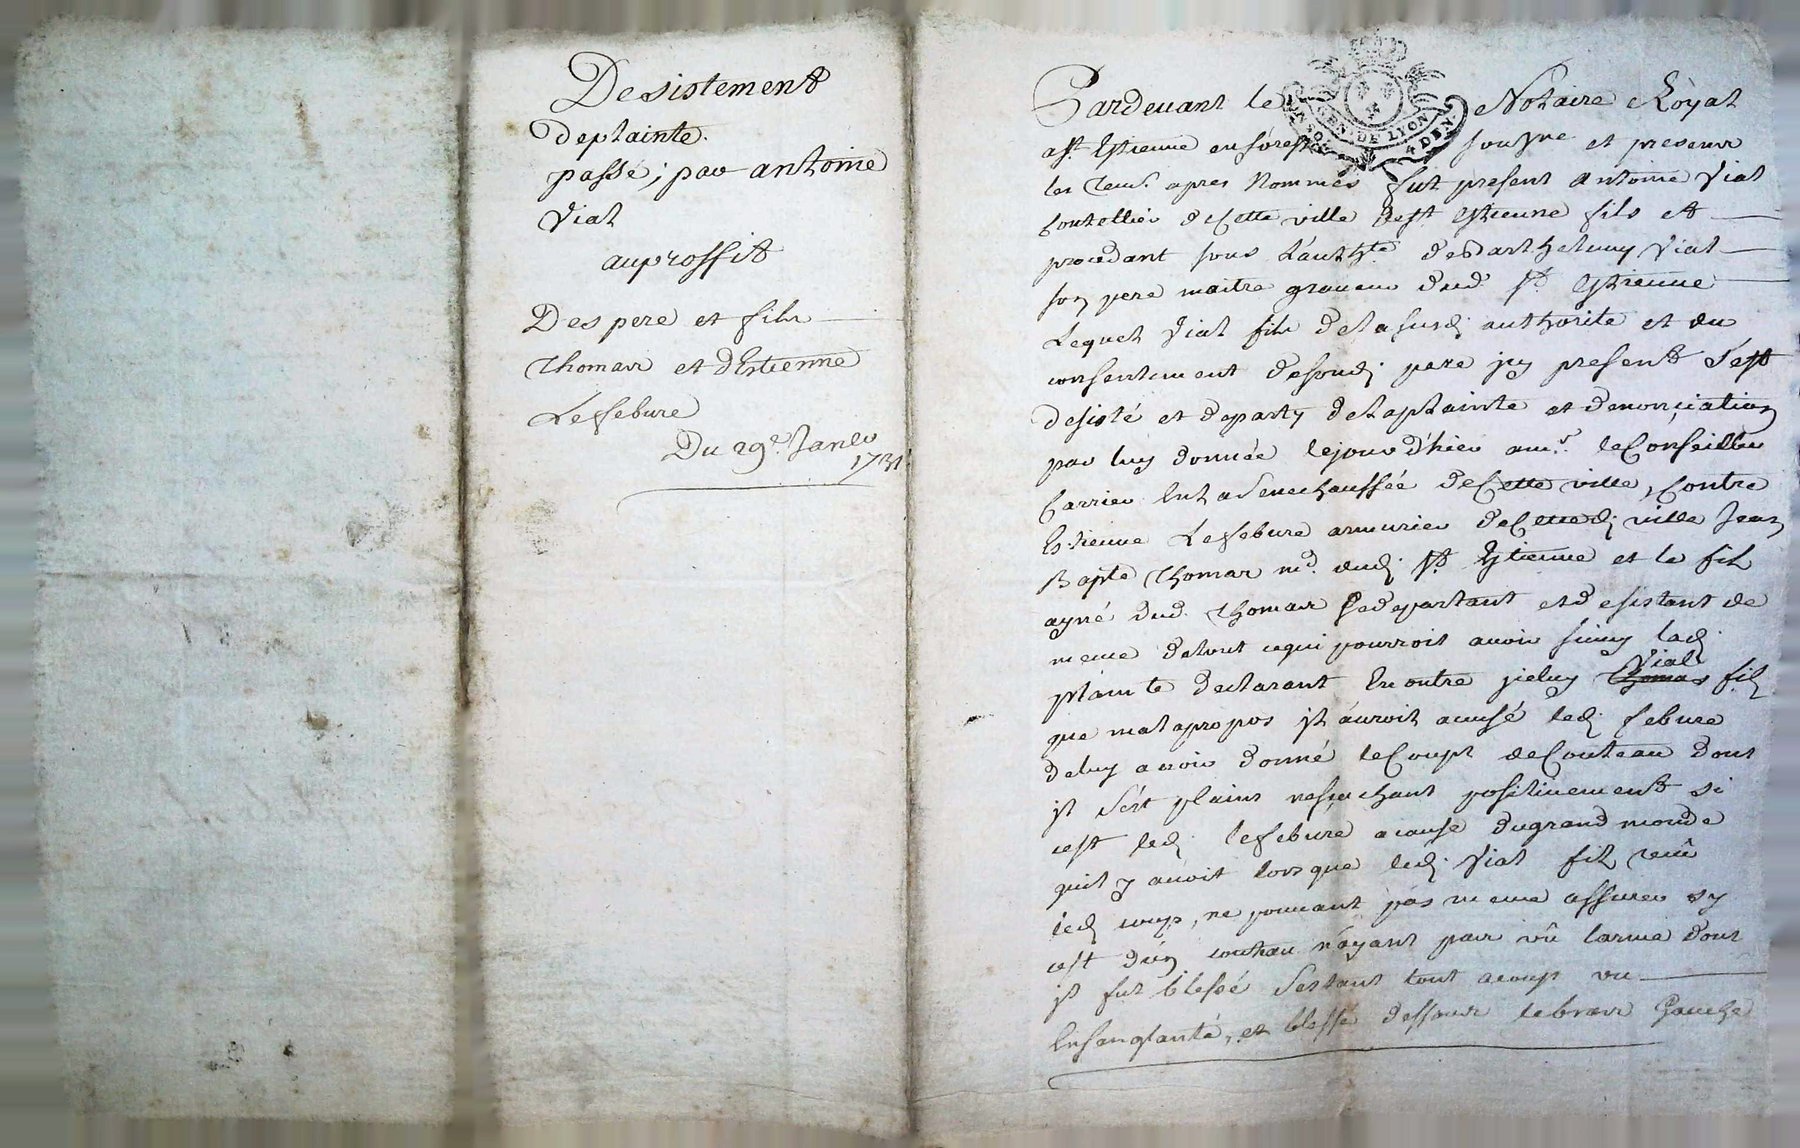 Desistement
deplainte.
passé; par antoine
Vial
auproffit
Des pere et fils
Thomas et d'Estienne
Lefebure
Du 29e. Janer
1731
Pardevant le Notaire Royal
a St. Estienne en forest soussne et present
les tems. apres Nommés fut present Antoine Vial
Coutellier de Cette ville de St. Estienne fils et
procedant sous L'authté. de Barthelemy Vial
son pere maitre graveur dud St. Estienne
Lequel Vial fils de la susd. authorite et du
consentement de soud. pere jcy present s'est
desisté et departy de la plainte et denonciation
par luy donnée le jour d'hier a mr. le Conseiller
Carrier En la Senechaussée de Cette ville, Contre
Estienne Lefebure armurier de Cetted. ville Jean
Bapte Thomas md. dud. St. Estienne et le fils
ayné dud. Thomas Se departant et desistant de
meme de tout ce qui pourroit avoir suivy lad.
plainte declarant En outre jceluy Vial fils
que mal apropos jl auroit accusé led. febure
de luy avoir donné le Coupt de Couteau dont
jl s'est plaint ne sachant positivement si
cest led. lefebure a cause du grand monde
quil y avoit lors que led. Vial fils receu
led. coup, ne pouvant pas meme assurer sy
cest d'un couteau n'ayant pas vû larme dont
jl fut blessé s'estant tout acoup vu
Ensanglanté, et blessé dessous le bras Gauche
GEN. DE LYON